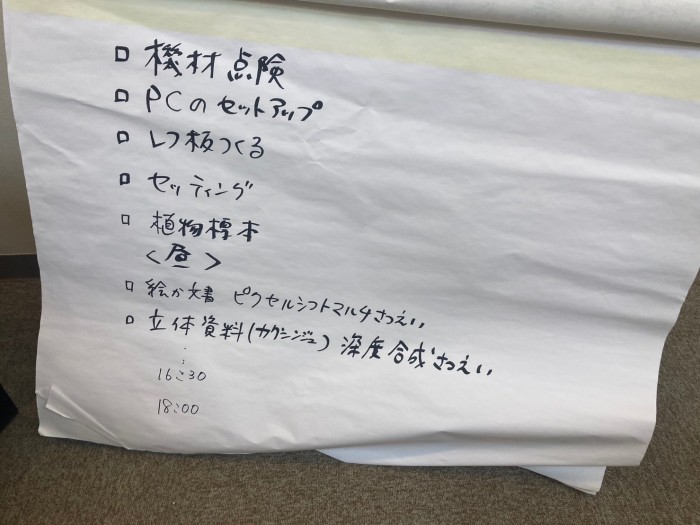 □ 機材点険
□ PCのセットアップ
□ レフ板つくる
□ セッティング
□ 植物標本
<昼>
□ 絵か文書 ピクセルシフトマルチさつえい
□ 立体資料(カクシンジュ) 深度合成さつえい
:
:
16:30
18:00